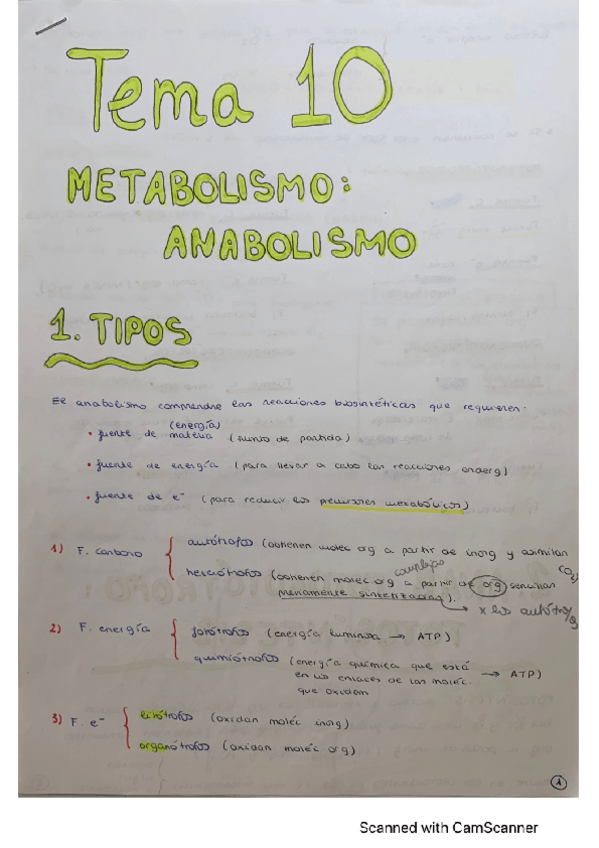 Tema 10
METABOLISMO:
ANABOLISMO
1. TIPOS
El anabolismo comprende las reacciones biosintéticas que requieren:
(energía)
• fuente de materia (punto de partida)
• fuente de energía (para llevar a cabo las reacciones enderg)
• fuente de e⁻ (para reducir los precursores metabólicos)
1) F. carbono
autótrofos (obtienen moléc org a partir de inorg y asimilan CO₂)
complejas
heterótrofos (obtienen moléc org a partir de org sencillas
previamente sintetizadas).
→ x los autótrofos
2) F. energía
fotótrofos (energía luminosa → ATP)
quimiótrofos (energía química que está
en los enlaces de las moléc. → ATP)
que oxidan
3) F. e⁻
litótrofos (oxidan moléc inorg)
organótrofos (oxidan moléc org)
1
Scanned with CamScanner